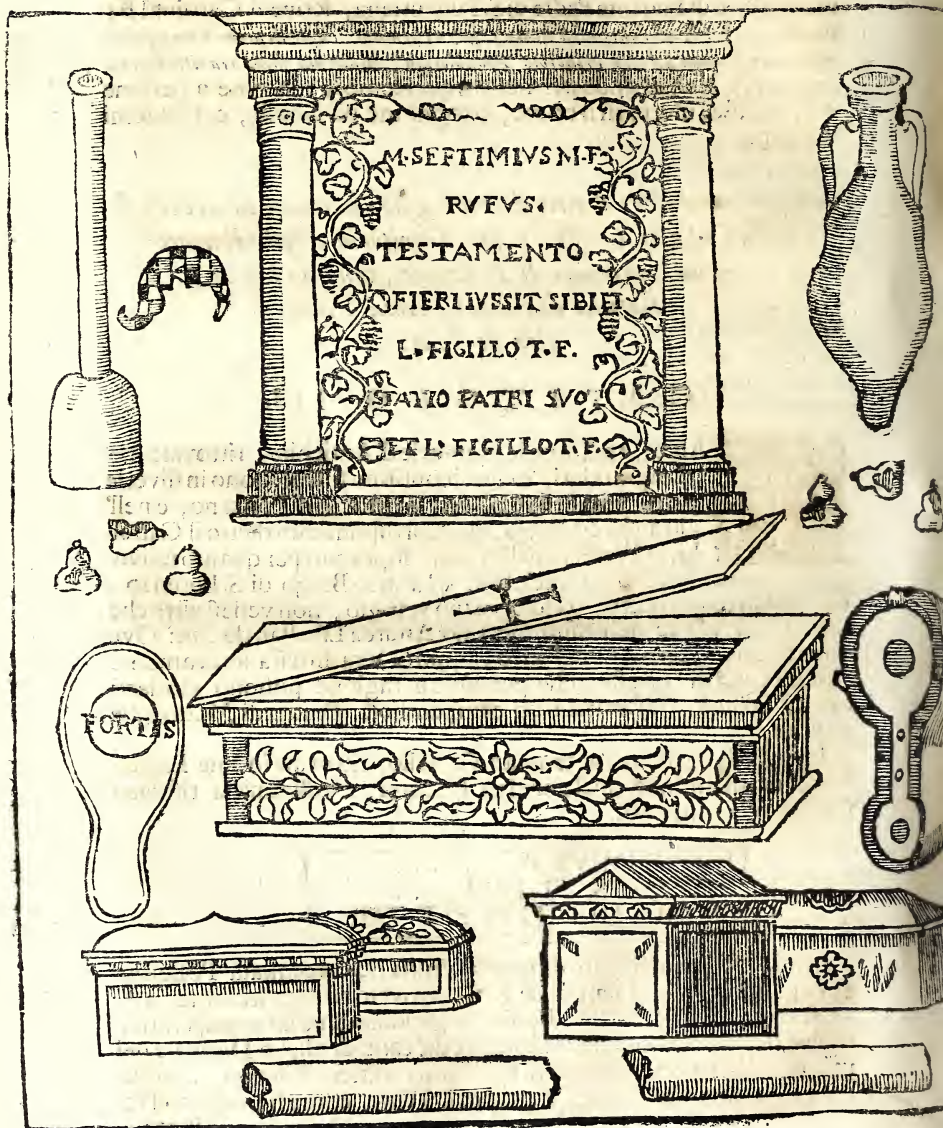 M·SEPTIMIVS M·F·
RVFVS.
TESTAMENTO
FIERI IVSSIT SIBI ET
L. FIGILLO T. F.
STATIO PATRI SVO
ET L. FIGILLO T. F.
FORTIS